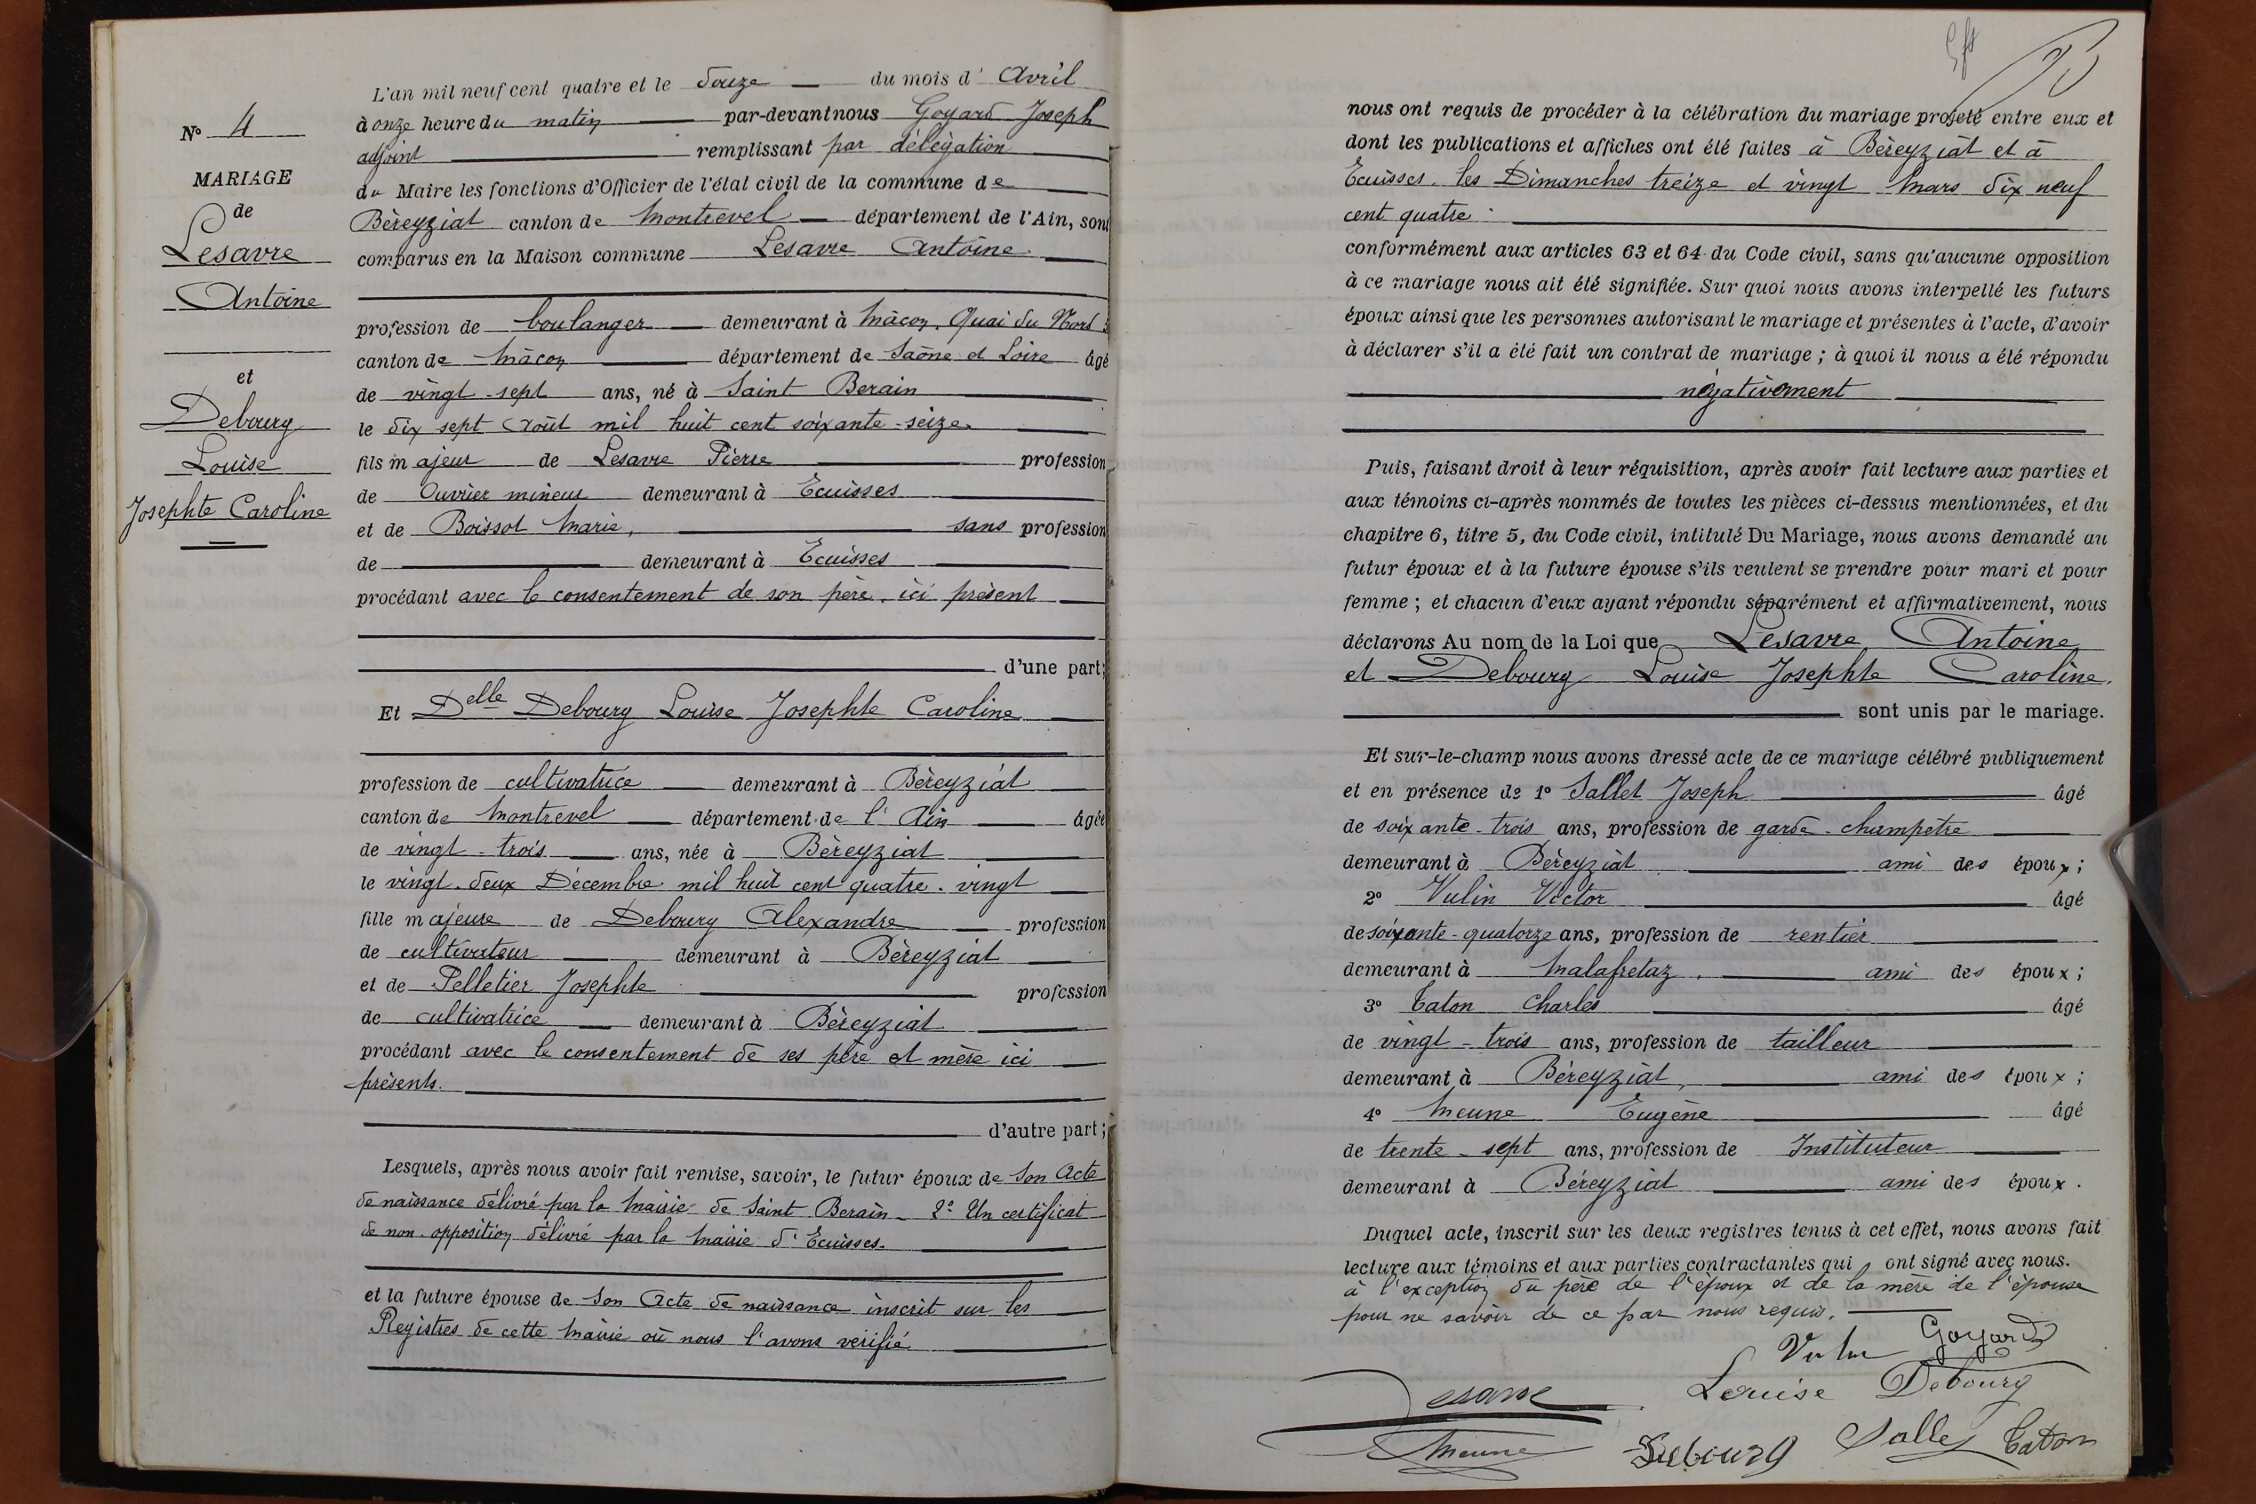 L'an mil neuf cent quatre et le douze du mois d' Avril
N° 4
à onze heure du matin par-devant nous Goyard Joseph
adjoint remplissant par délégation
MARIAGE
du Maire les fonctions d'Officier de l'état civil de la commune de
de
Béreyziat canton de Montrevel département de l'Ain, sont
Lesavre
comparus en la Maison commune Lesavre Antoine
Antoine
profession de boulanger demeurant à Mâcon, Quai du Nord
canton de Mâcon département de Saône et Loire âgé
et
de vingt-sept ans, né à Saint Berain
Debourg
le dix sept Août mil huit cent soixante-seize.
Louise
fils majeur de Lesavre Pierre profession
Josephte Caroline
de Ouvrier mineur demeurant à Ecuisses
et de Boissot Marie, sans profession
de demeurant à Ecuisses
procédant avec le consentement de son père, ici présent
d'une part;
Et Delle Debourg Louise Josephte Caroline
profession de cultivatrice demeurant à Béreyziat
canton de Montrevel département de l'Ain âgée
de vingt-trois ans, née à Béreyziat
le vingt-deux Décembre mil huit cent quatre-vingt
fille majeure de Debourg Alexandre profession
de cultivateur demeurant à Béreyziat
et de Pelletier Josephte profession
de cultivatrice demeurant à Béreyziat
procédant avec le consentement de ses père et mère ici
présents.
d'autre part;
Lesquels, après nous avoir fait remise, savoir, le futur époux de Son Acte
de naissance délivré par la Mairie de Saint Berain - 2° Un certificat
de non-opposition délivré par la Mairie d'Ecuisses.
et la future épouse de Son Acte de naissance inscrit sur les
Registres de cette Mairie où nous l'avons vérifié
nous ont requis de procéder à la célébration du mariage projeté entre eux et
dont les publications et affiches ont été faites à Béreyziat et à
Ecuisses, les Dimanches treize et vingt Mars dix neuf
cent quatre
conformément aux articles 63 et 64 du Code civil, sans qu'aucune opposition
à ce mariage nous ait été signifiée. Sur quoi nous avons interpellé les futurs
époux ainsi que les personnes autorisant le mariage et présentes à l'acte, d'avoir
à déclarer s'il a été fait un contrat de mariage; à quoi il nous a été répondu
négativement
Puis, faisant droit à leur réquisition, après avoir fait lecture aux parties et
aux témoins ci-après nommés de toutes les pièces ci-dessus mentionnées, et du
chapitre 6, titre 5, du Code civil, intitulé Du Mariage, nous avons demandé au
futur époux et à la future épouse s'ils veulent se prendre pour mari et pour
femme; et chacun d'eux ayant répondu séparément et affirmativement, nous
déclarons Au nom de la Loi que Lesavre Antoine
et Debourg Louise Josephte Caroline.
sont unis par le mariage.
Et sur-le-champ nous avons dressé acte de ce mariage célébré publiquement
et en présence de 1° Sallet Joseph âgé
de soixante-trois ans, profession de garde-champetre
demeurant à Béreyziat ami des époux;
2° Vulin Victor âgé
de soixante-quatorze ans, profession de rentier
demeurant à Malafretaz, ami des époux;
3° Caton Charles âgé
de vingt-trois ans, profession de tailleur
demeurant à Béreyziat, ami des époux;
4° Meune Eugène âgé
de trente-sept ans, profession de Instituteur
demeurant à Béreyziat ami des époux.
Duquel acte, inscrit sur les deux registres tenus à cet effet, nous avons fait
lecture aux témoins et aux parties contractantes qui ont signé avec nous.
à l'exception du père de l'époux et de la mère de l'épouse
pour ne savoir de ce par nous requis.
Vulin Goyard
Lesavre Louise Debourg
Meune Debourg Sallet Caton